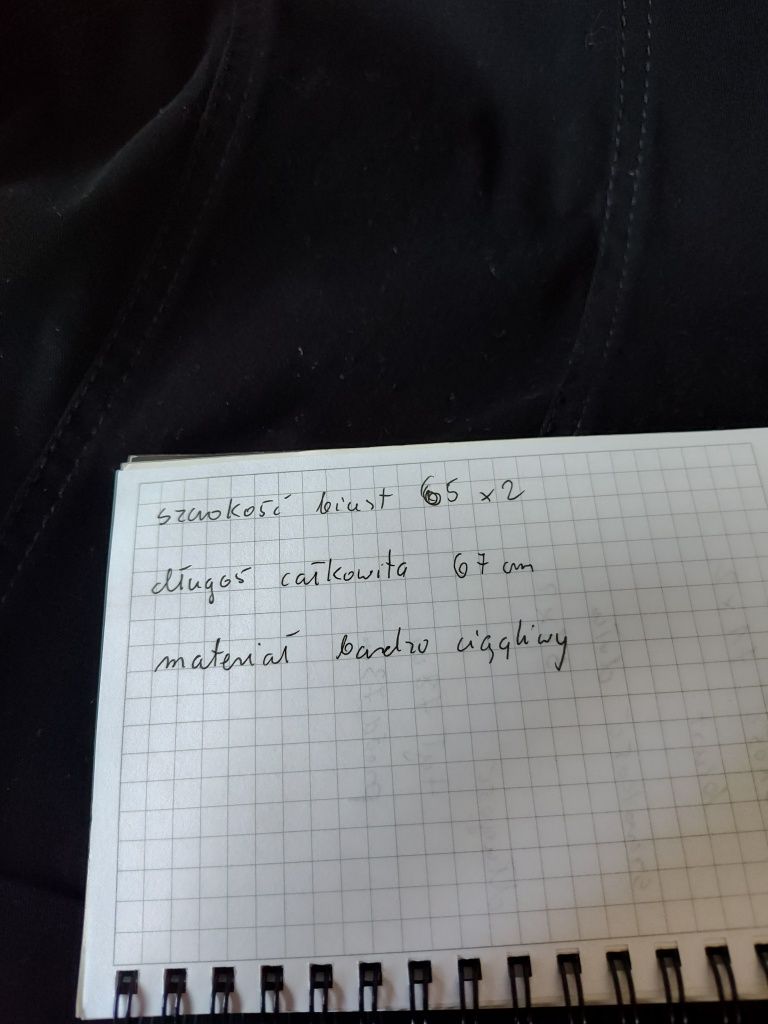 szerokość biust 65 x 2
długoś całkowita 67 cm
materiał bardzo ciągliwy